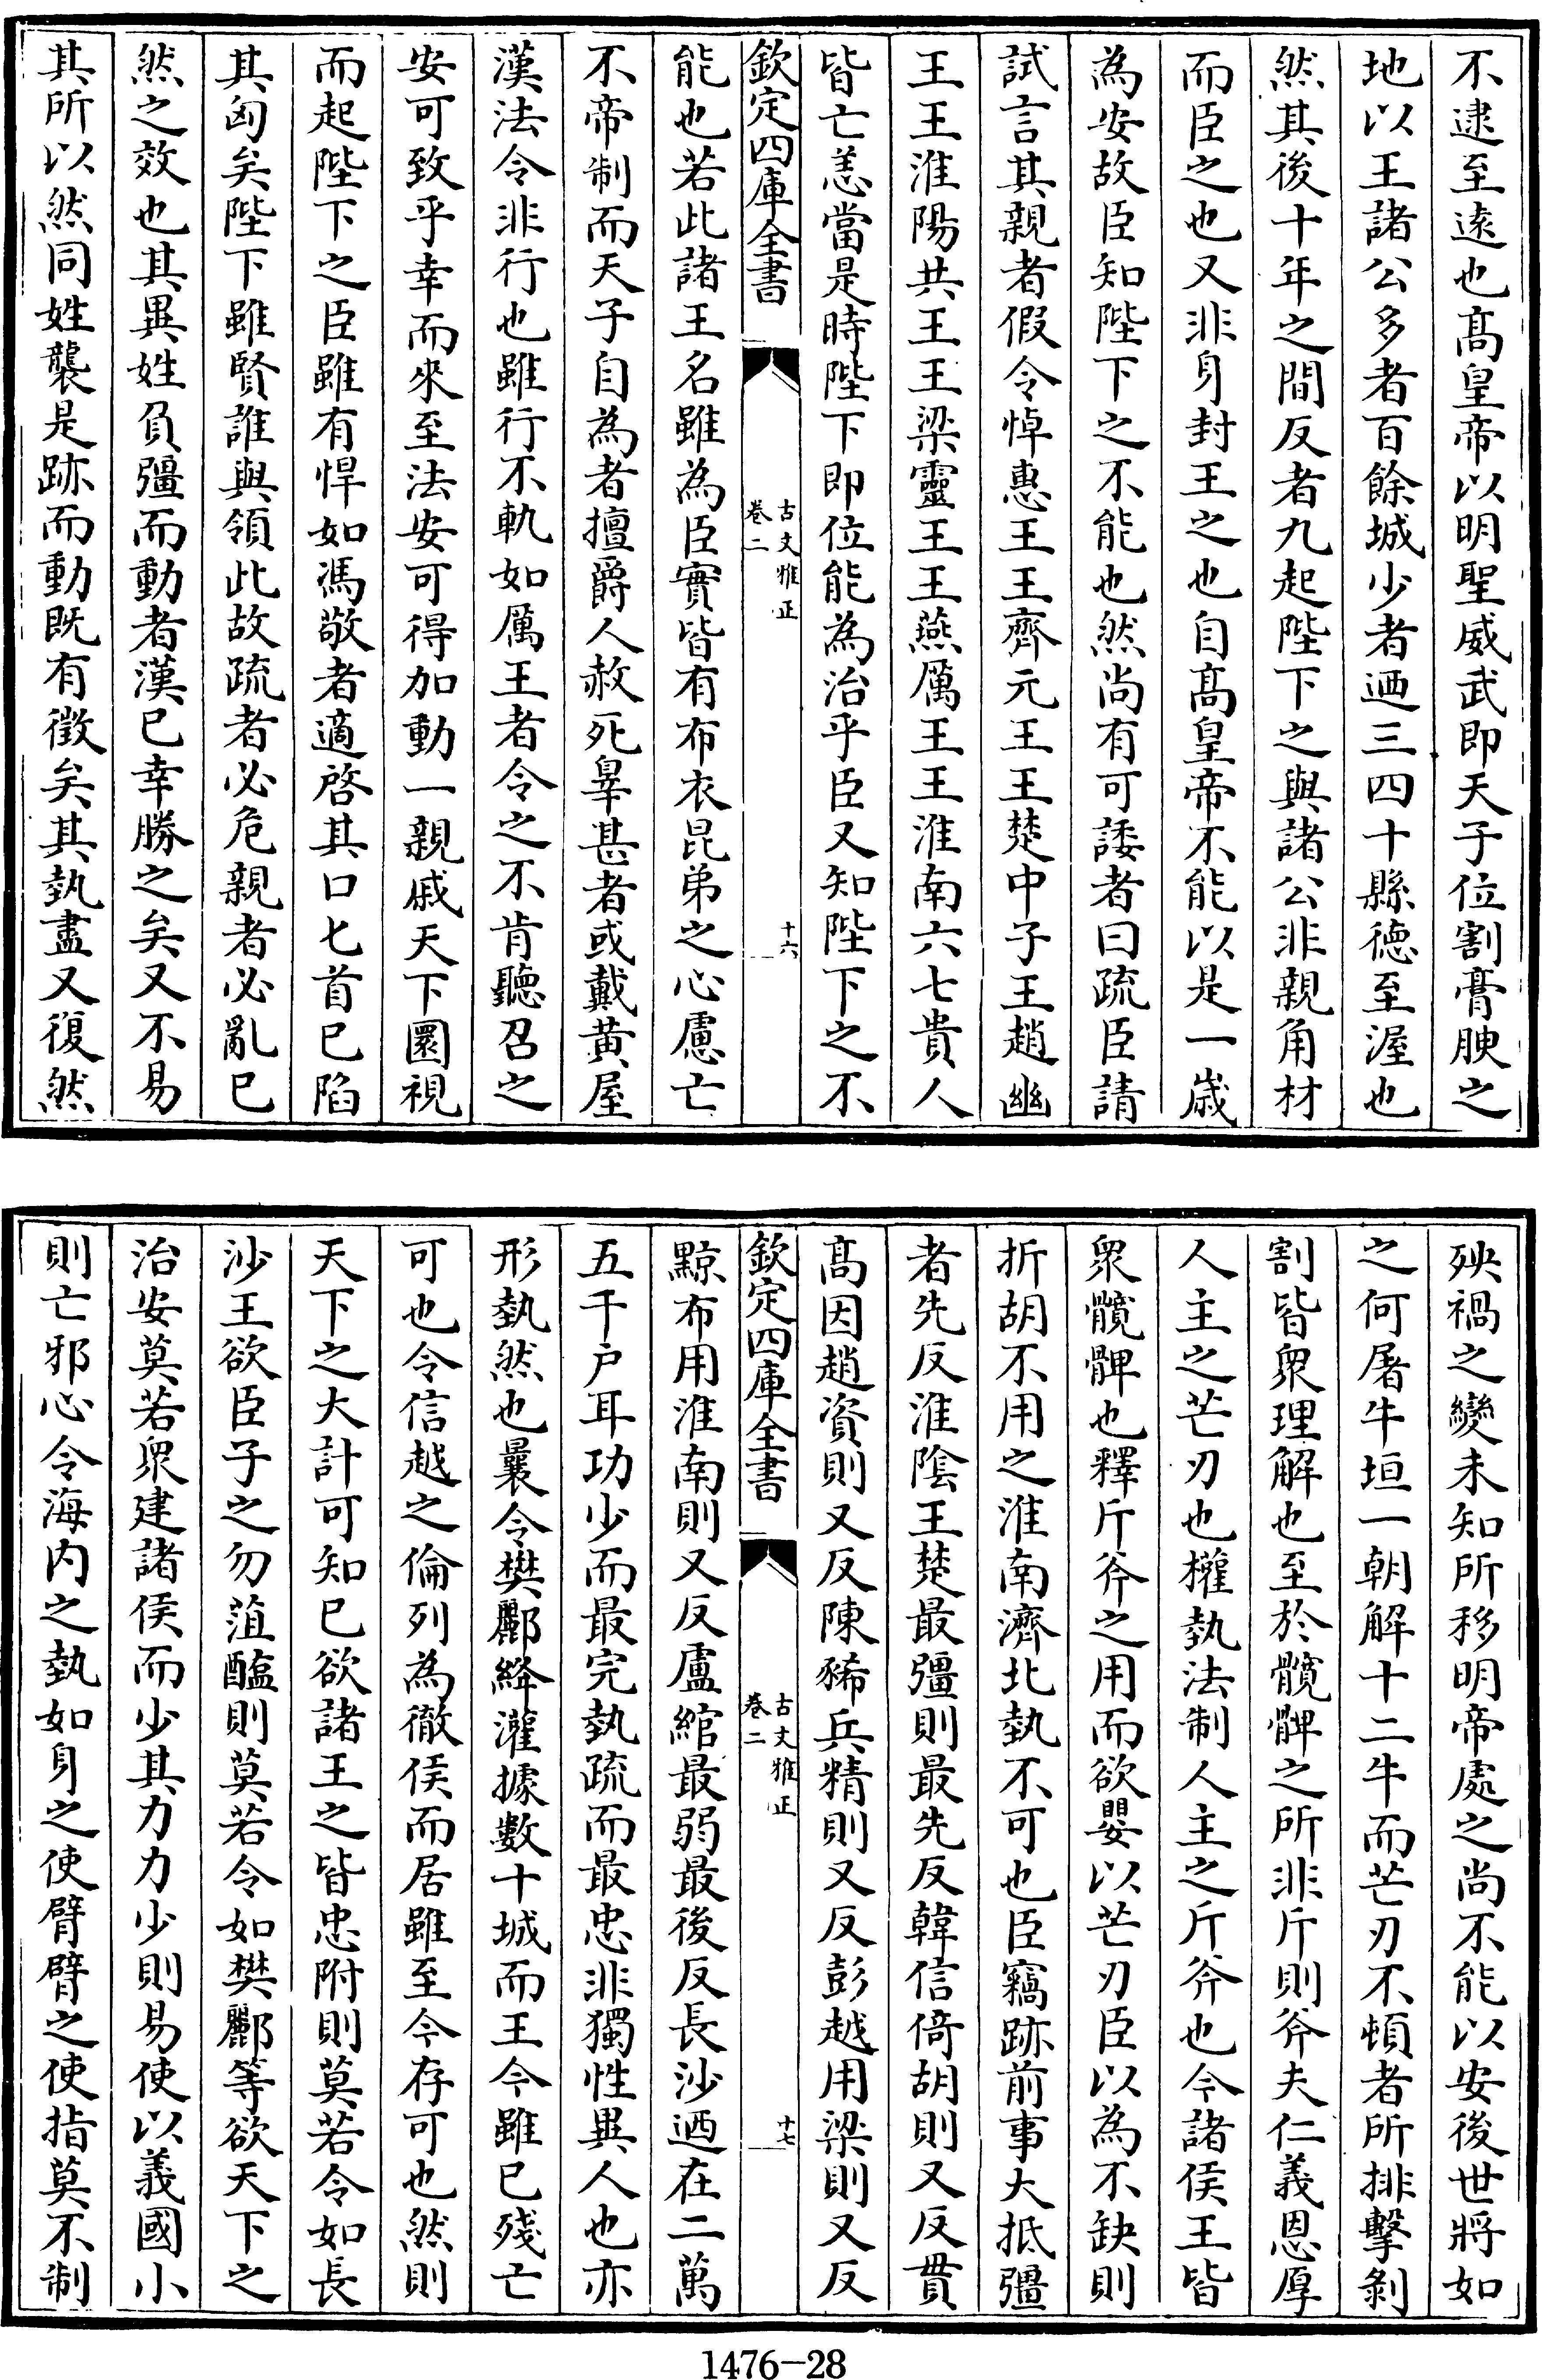 不逮至逺也髙皇帝以明聖威武即天子位割膏腴之
地以王諸公多者百餘城少者迺三四十縣徳至渥也
然其後十年之間反者九起陛下之與諸公非親角材
而臣之也又非身封王之也自髙皇帝不能以是一歳
為安故臣知陛下之不能也然尚有可諉者曰疏臣請
試言其親者假令悼惠王王齊元王王楚中子王趙幽
王王淮陽共王王梁靈王王燕厲王王淮南六七貴人
皆亡恙當是時陛下即位能為治乎臣又知陛下之不
欽定四庫全書
古文雅正
卷二
十六
能也若此諸王名雖為臣實皆有布衣昆弟之心慮亡
不帝制而天子自為者擅爵人赦死辠甚者或戴黄屋
漢法令非行也雖行不軌如厲王者令之不肯聽召之
安可致乎幸而來至法安可得加動一親戚天下圜視
而起陛下之臣雖有悍如馮敬者適啓其口匕首已陷
其匈矣陛下雖賢誰與領此故疏者必危親者必亂已
然之效也其異姓負彊而動者漢已幸勝之矣又不易
其所以然同姓襲是跡而動既有徴矣其埶盡又復然
殃禍之變未知所移明帝處之尚不能以安後世將如
之何屠牛垣一朝解十二牛而芒刃不頓者所排擊剝
割皆衆理解也至於髖髀之所非斤則斧夫仁義恩厚
人主之芒刃也權埶法制人主之斤斧也今諸侯王皆
衆髖髀也釋斤斧之用而欲嬰以芒刃臣以為不缺則
折胡不用之淮南濟北埶不可也臣竊跡前事大抵彊
者先反淮陰王楚最彊則最先反韓信倚胡則又反貫
髙因趙資則又反陳豨兵精則又反彭越用梁則又反
欽定四庫全書
古文雅正
卷二
十七
黥布用淮南則又反盧綰最弱最後反長沙迺在二萬
五千户耳功少而最完埶疏而最忠非獨性異人也亦
形埶然也曩令樊酈絳灌據數十城而王今雖已殘亡
可也令信越之倫列為徹侯而居雖至今存可也然則
天下之大計可知已欲諸王之皆忠附則莫若令如長
沙王欲臣子之勿菹醢則莫若令如樊酈等欲天下之
治安莫若衆建諸侯而少其力力少則易使以義國小
則亡邪心令海内之埶如身之使臂臂之使指莫不制
1476-28